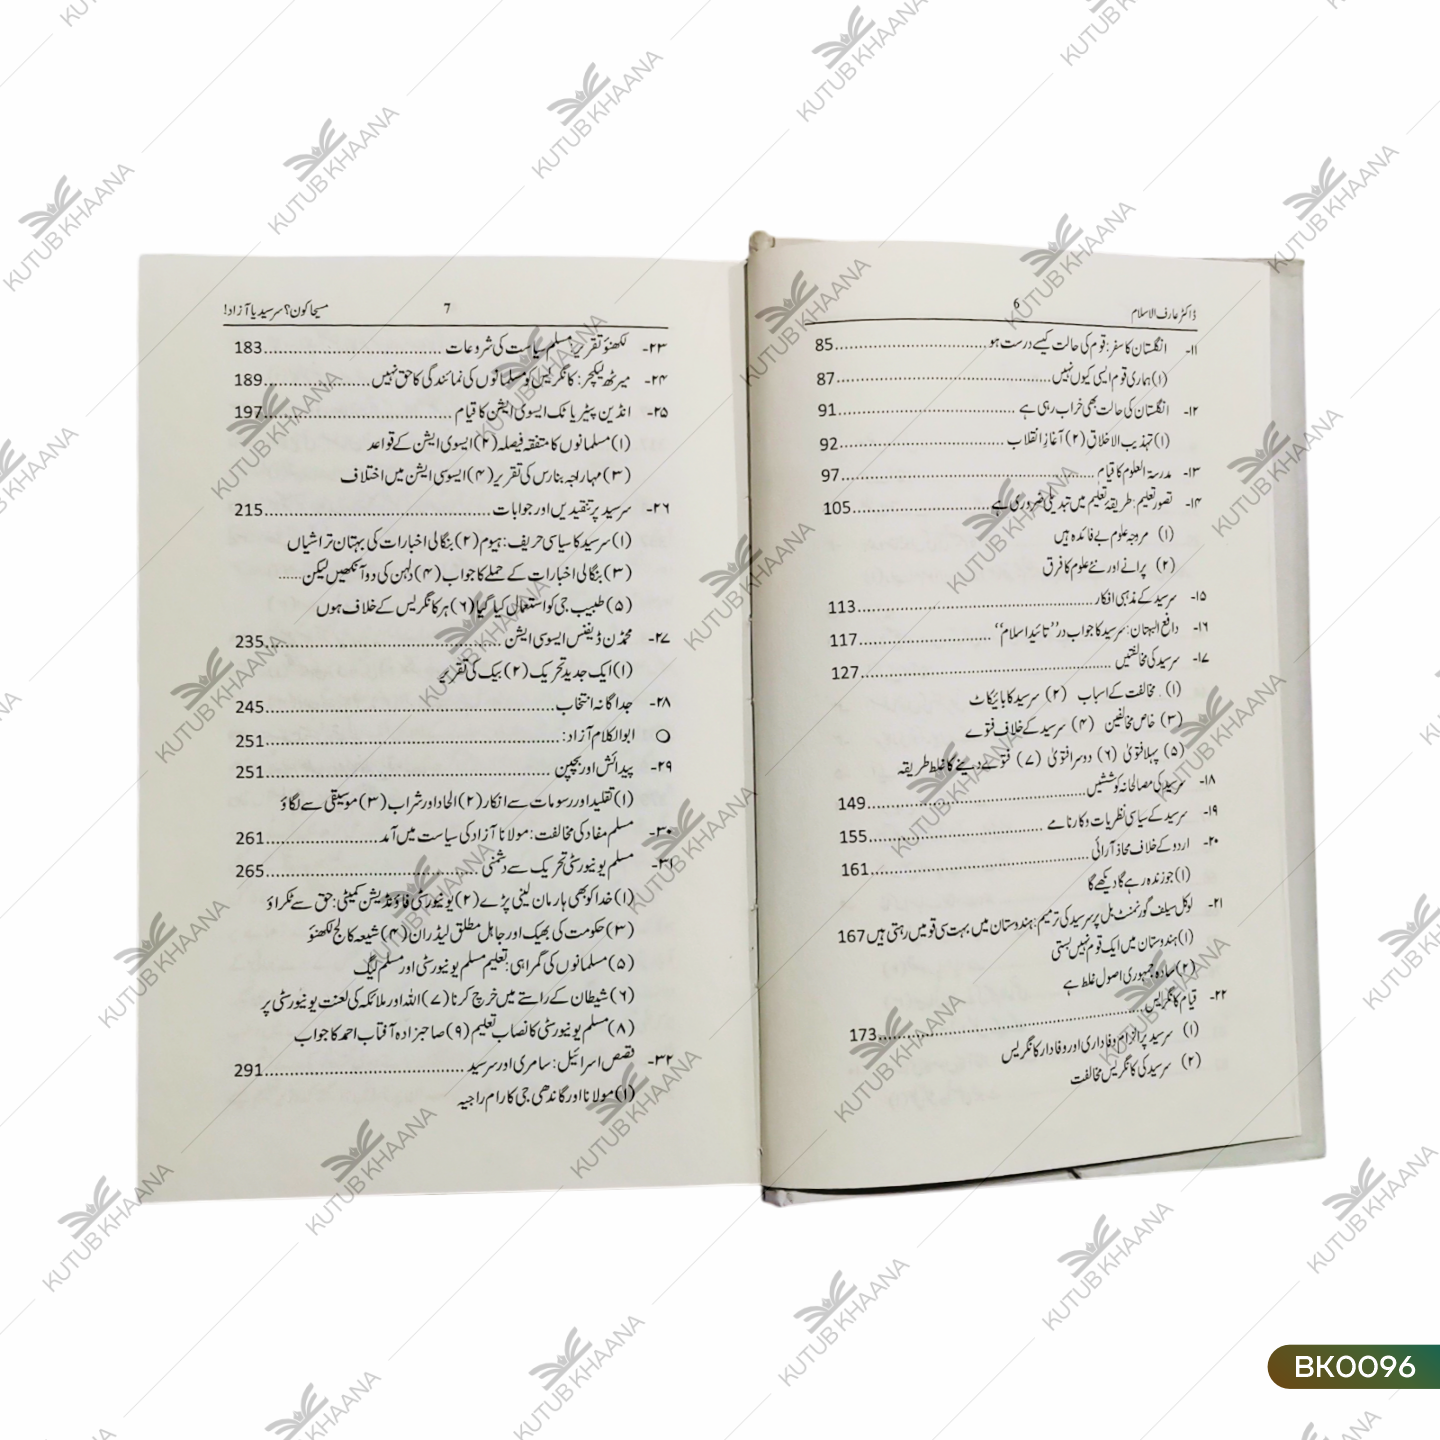 ڈاکٹر عارف الاسلام 6
۱۱- انگلستان کا سفر: قوم کی حالت کیسے درست ہو 85
(۱) ہماری قوم ایسی کیوں نہیں 87
۱۲- انگلستان کی حالت بھی خراب رہی ہے 91
(۱) تہذیب الاخلاق (۲) آغازِ انقلاب 92
۱۳- مدرسۃ العلوم کا قیام 97
۱۴- تصور تعلیم: طریقۂ تعلیم میں تبدیلی ضروری ہے 105
(۱) مروجہ علوم بے فائدہ ہیں
(۲) پرانے اور نئے علوم کا فرق
۱۵- سرسید کے مذہبی افکار 113
۱۶- دافع البہتان: سرسید کا جواب در ’’تائید اسلام‘‘ 117
۱۷- سرسید کی مخالفتیں 127
(۱) مخالفت کے اسباب (۲) سرسید کا بائیکاٹ
(۳) خاص مخالفین (۴) سرسید کے خلاف فتوے
(۵) پہلا فتویٰ (۶) دوسرا فتویٰ (۷) فتوے دینے کا غلط طریقہ
۱۸- سرسید کی مصالحانہ کوششیں 149
۱۹- سرسید کے سیاسی نظریات و کارنامے 155
۲۰- اردو کے خلاف محاذ آرائی 161
(۱) جو زندہ رہے گا دیکھے گا
۲۱- لوکل سیلف گورنمنٹ بل پر سرسید کی ترمیم: ہندوستان میں بہت سی قومیں رہتی ہیں 167
(۱) ہندوستان میں ایک قوم نہیں بستی
(۲) سادہ جمہوری اصول غلط ہے
۲۲- قیام کانگریس 173
(۱) سرسید پر الزام وفاداری اور وفادار کانگریس
(۲) سرسید کی کانگریس مخالفت
مسیحا کون؟ سرسید یا آزاد! 7
۲۳- لکھنؤ تقریر: مسلم سیاست کی شروعات 183
۲۴- میرٹھ لیکچر: کانگریس کو مسلمانوں کی نمائندگی کا حق نہیں 189
۲۵- انڈین پیٹریاٹک ایسوی ایشن کا قیام 197
(۱) مسلمانوں کا متفقہ فیصلہ (۲) ایسوی ایشن کے قواعد
(۳) مہاراجہ بنارس کی تقریر (۴) ایسوی ایشن میں اختلاف
۲۶- سرسید پر تنقیدیں اور جوابات 215
(۱) سرسید کا سیاسی حریف: ہیوم (۲) بنگالی اخبارات کی بہتان تراشیاں
(۳) بنگالی اخبارات کے حملے کا جواب (۴) دلہن کی دو آنکھیں لیکن......
(۵) طبیب جی کو استعمال کیا گیا (۶) ہر کانگریس کے خلاف ہوں
۲۷- محمڈن ڈیفنس ایسوی ایشن 235
(۱) ایک جدید تحریک (۲) بیک کی تقریر
۲۸- جداگانہ انتخاب 245
○ ابوالکلام آزاد: 251
۲۹- پیدائش اور بچپن 251
(۱) تقلید اور رسومات سے انکار (۲) الحاد اور شراب (۳) موسیقی سے لگاؤ
۳۰- مسلم مفاد کی مخالفت: مولانا آزاد کی سیاست میں آمد 261
۳۱- مسلم یونیورسٹی تحریک سے دشمنی 265
(۱) خدا کو بھی ہار مان لینی پڑے (۲) یونیورسٹی فاؤنڈیشن کمیٹی: حق سے ٹکراؤ
(۳) حکومت کی بھیک اور جاہل مطلق لیڈران (۴) شیعہ کالج لکھنؤ
(۵) مسلمانوں کی گمراہی: تعلیم مسلم یونیورسٹی اور مسلم لیگ
(۶) شیطان کے راستے میں خرچ کرنا (۷) اللہ اور ملائکہ کی لعنت یونیورسٹی پر
(۸) مسلم یونیورسٹی کا نصاب تعلیم (۹) صاحبزادہ آفتاب احمد کا جواب
۳۲- قصص اسرائیل: سامری اور سرسید 291
(۱) مولانا اور گاندھی جی کا رام راجیہ
KUTUB KHAANA
BK0096